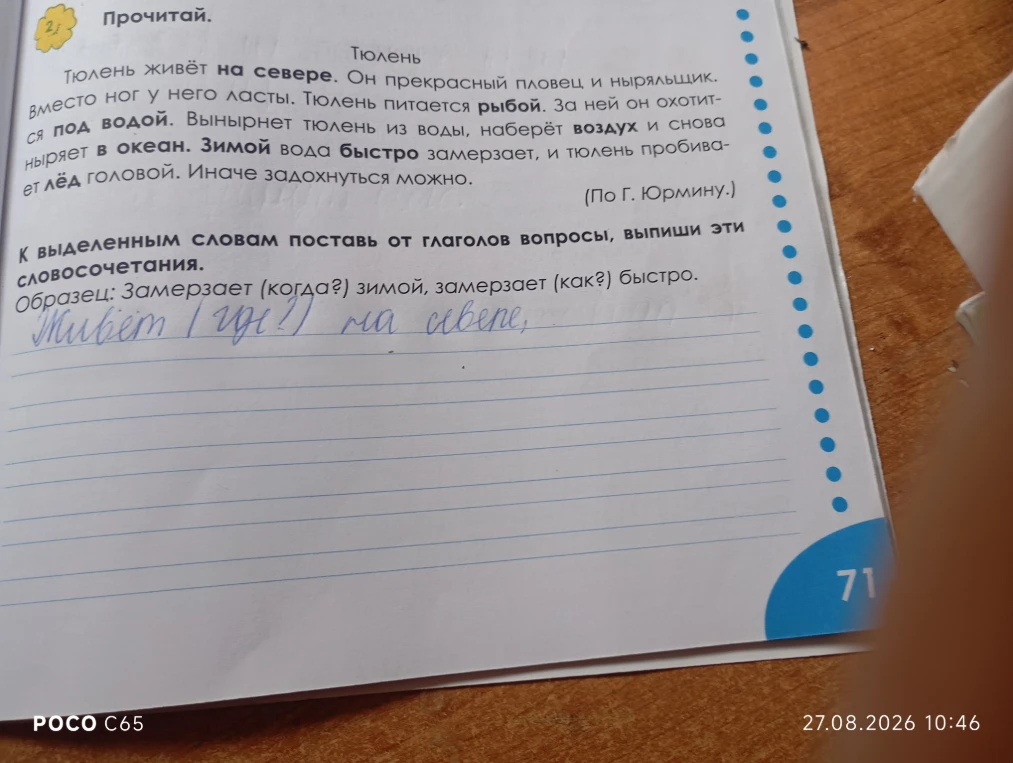 2
Прочитай.
Тюлень
Тюлень живёт на севере. Он прекрасный пловец и ныряльщик.
Вместо ног у него ласты. Тюлень питается рыбой. За ней он охотит-
ся под водой. Вынырнет тюлень из воды, наберёт воздух и снова
ныряет в океан. Зимой вода быстро замерзает, и тюлень пробива-
ет лёд головой. Иначе задохнуться можно.
(По Г. Юрмину.)
К выделенным словам поставь от глаголов вопросы, выпиши эти
словосочетания.
Образец: Замерзает (когда?) зимой, замерзает (как?) быстро.
Живёт (где?) на севере,
71
POCO C65
27.08.2026 10:46